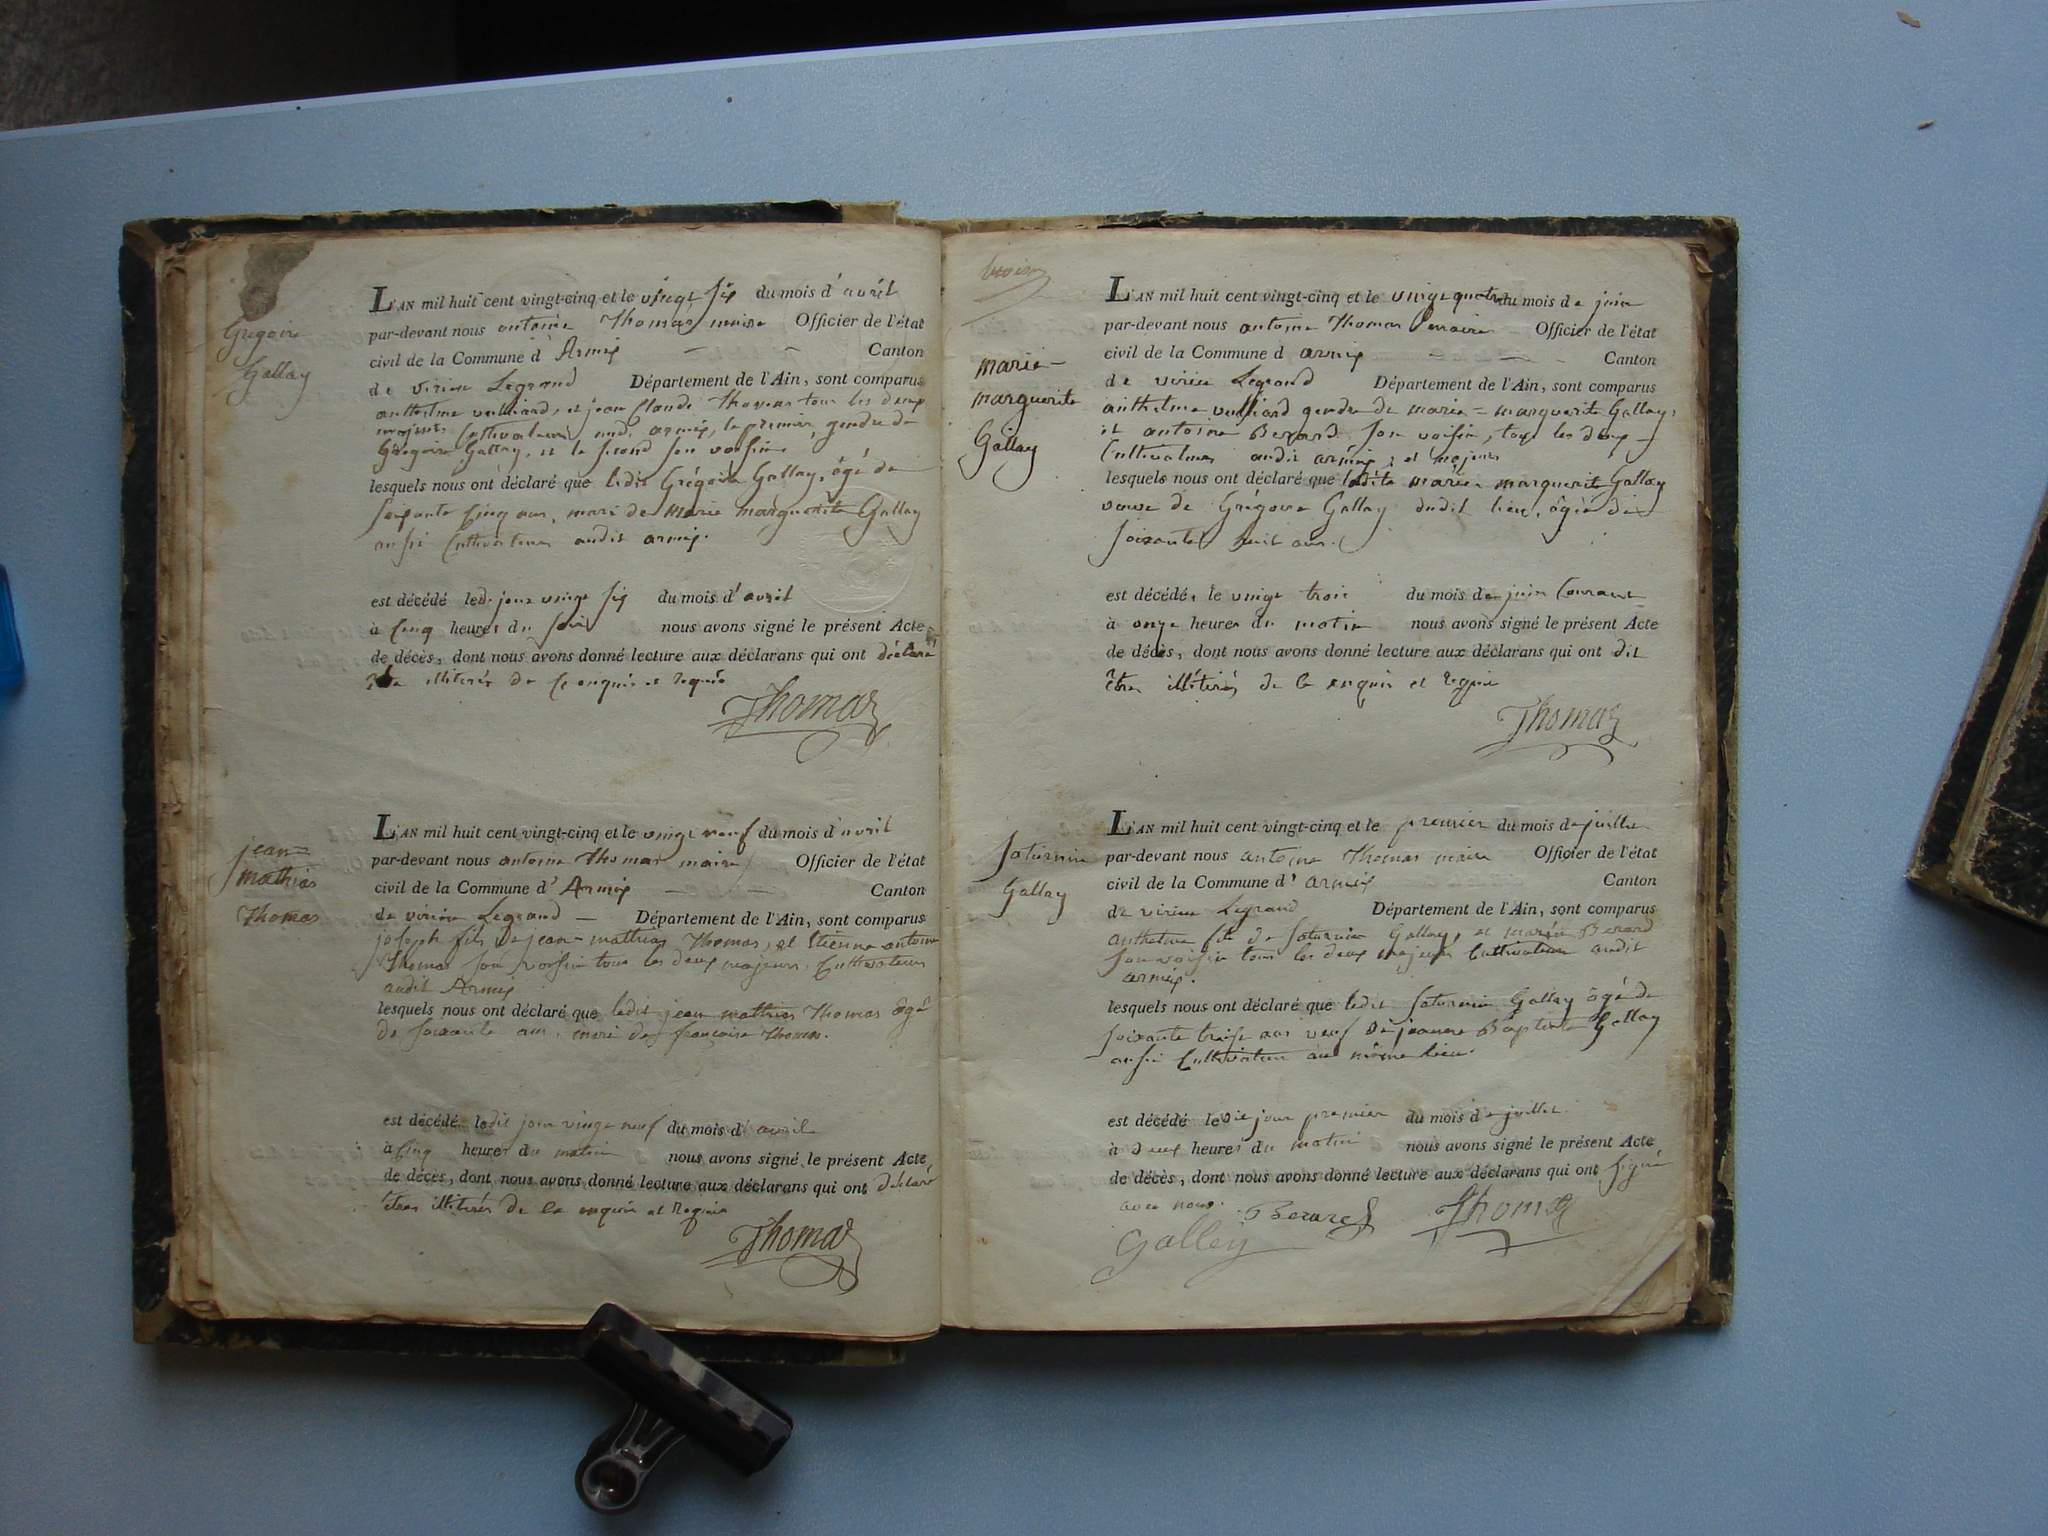 Grégoire
Gallay
L'AN mil huit cent vingt-cinq et le vingt six du mois d'avril
par-devant nous antoine Thomas maire Officier de l'état
civil de la Commune d'Armix Canton
de virieu Legrand Département de l'Ain, sont comparus
anthelme vulliard, et jean Claude Thomas tous les deux
majeurs Cultivateurs audit armix, le premier gendre de
Grégoire Gallay, et le second son voisin
lesquels nous ont déclaré que ledit Grégoire Gallay, âgé de
soixante cinq ans, mari de Marie marguerite Gallay
aussi Cultivateur audit armix.
est décédé ledit jour vingt six du mois d'avril
à cinq heures du soir nous avons signé le présent Acte
de décès, dont nous avons donné lecture aux déclarans qui ont déclaré
être illitérés de ce enquis et requis
Thomas
jean=
mathias
Thomas
L'AN mil huit cent vingt-cinq et le vingt neuf du mois d'avril
par-devant nous antoine Thomas maire Officier de l'état
civil de la Commune d'Armix Canton
de virieu Legrand Département de l'Ain, sont comparus
joseph fils de jean=mathias Thomas, et Etienne antoine
Thomas son voisin tous les deux majeurs Cultivateurs
audit Armix
lesquels nous ont déclaré que ledit jean mathias Thomas âgé
de soixante ans, mari de françoise Thomas.
est décédé ledit jour vingt neuf du mois d'avril
à cinq heures du matin nous avons signé le présent Acte
de décès, dont nous avons donné lecture aux déclarans qui ont déclaré
être illitérés de ce enquis et Requis
Thomas
marie=
marguerite
Gallay
L'AN mil huit cent vingt-cinq et le vingt quatre du mois de juin
par-devant nous antoine Thomas maire Officier de l'état
civil de la Commune d armix Canton
de virieu Legrand Département de l'Ain, sont comparus
anthelme vulliard gendre de marie=marguerite Gallay,
et antoine Berard son voisin, tous les deux
Cultivateurs audit armix, et majeurs
lesquels nous ont déclaré que ladite marie=marguerite Gallay
veuve de Grégoire Gallay dudit lieu, âgée de
soixante huit ans.
est décédée le vingt trois du mois de juin Courant
à onze heures du matin nous avons signé le présent Acte
de décès, dont nous avons donné lecture aux déclarans qui ont dit
être illitérés de ce enquis et requis
Thomas
saturnin
Gallay
L'AN mil huit cent vingt-cinq et le premier du mois de juillet
par-devant nous antoine Thomas maire Officier de l'état
civil de la Commune d'armix Canton
de virieu Legrand Département de l'Ain, sont comparus
anthelme fils de saturnin Gallay, et marin Berard
son voisin tous les deux majeurs Cultivateurs audit
armix.
lesquels nous ont déclaré que ledit saturnin Gallay âgé de
soixante treize ans veuf de jeanne Baptiste Gallay
aussi Cultivateur au même lieu.
est décédé ledit jour premier du mois de juillet
à deux heures du matin nous avons signé le présent Acte
de décès, dont nous avons donné lecture aux déclarans qui ont signé
avec nous. Berard Thomas
Galley